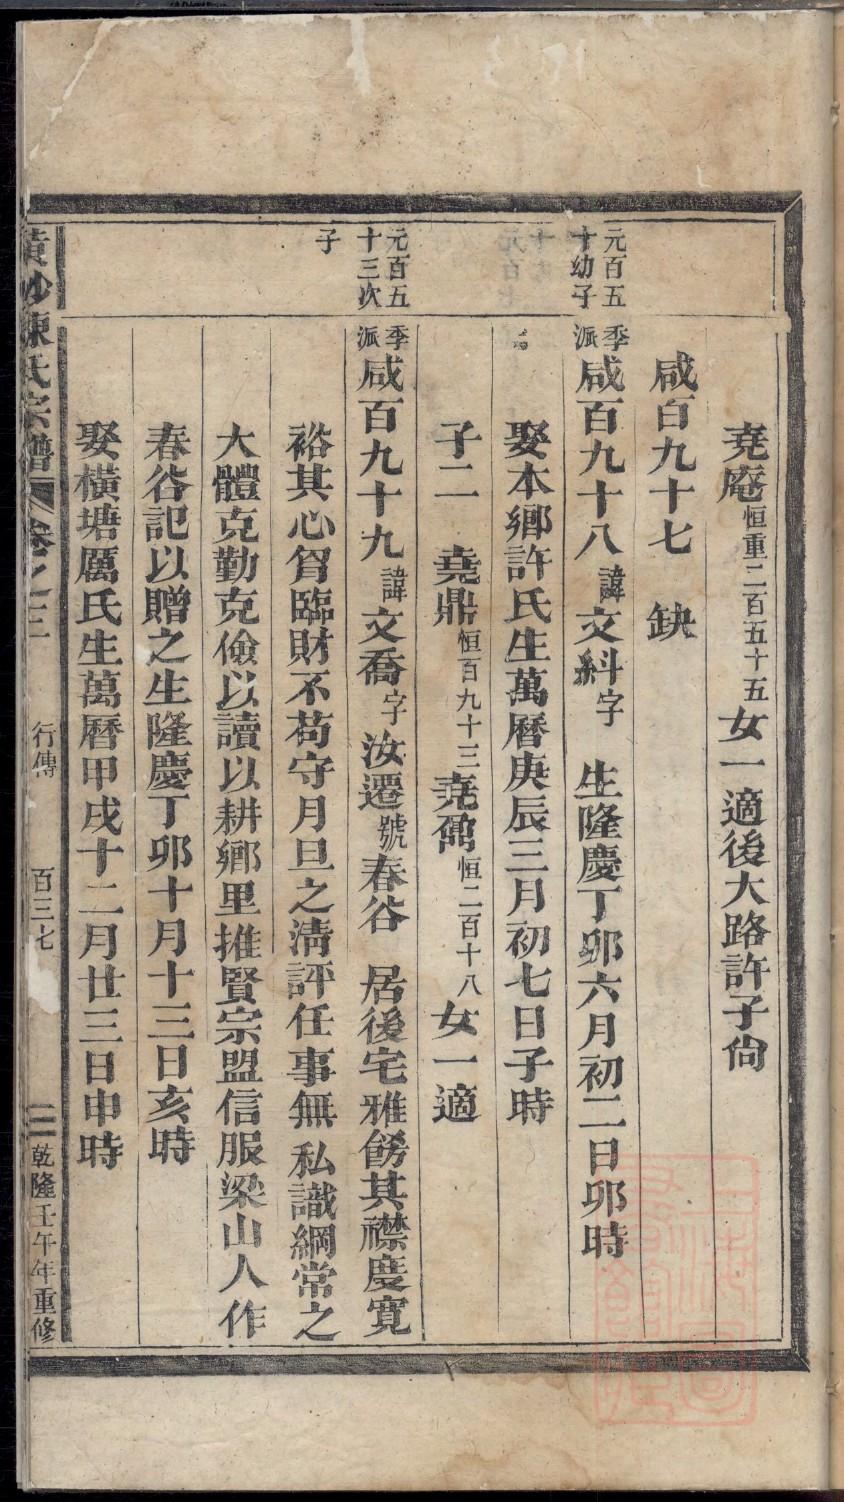 堯庵恒重二百五十五女一適後大路許子尙
咸百九十七　缺
元百五十幼子
季派咸百九十八諱文斜字　生隆慶丁卯六月初二日卯時
娶本鄉許氏生萬曆庚辰三月初七日子時
子二　堯鼎恒百九十三堯鷎恒二百十八女一適
元百五十三次子
季派咸百九十九諱文喬字汝遷號春谷　居後宅雅飭其襟度寬
裕其心貿臨財不苟守月旦之清評任事無私識綱常之
大體克勤克儉以讀以耕鄉里推賢宗盟信服梁山人作
春谷記以贈之生隆慶丁卯十月十三日亥時
娶橫塘厲氏生萬曆甲戌十二月廿三日申時
黃沙陳氏宗譜　卷之三　行傳　百三七　乾隆壬午年重修